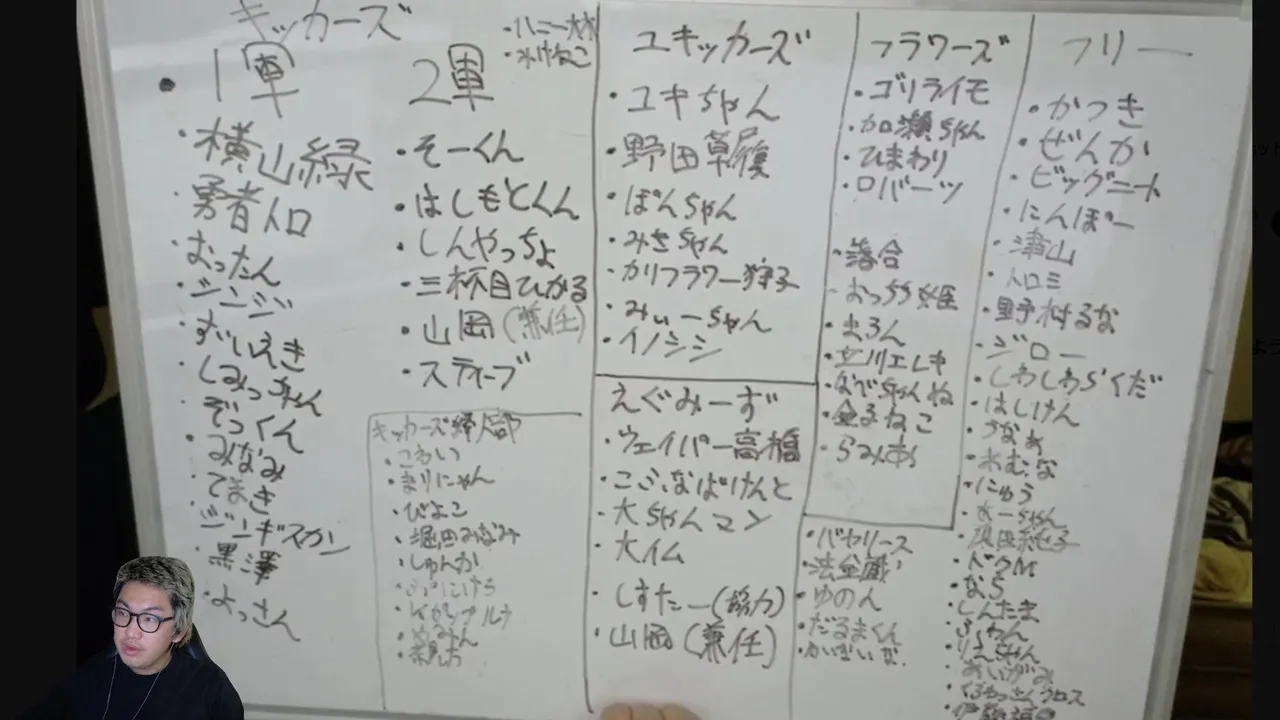 キッカーズ
・ハニー林
・水けねこ
・1軍
・横山緑
・勇者トロ
・むったん
・ジンジン
・ずいえき
・しみっちゃん
・ぞっくん
・みなみ
・てまき
・ジンギスカン
・黒澤
・よっさん
2軍
・そーくん
・はしもとくん
・しんやっちょ
・三杯目ひかる
・山岡(兼任)
・スティーブ
キッカーズ婦人部
・こわい
・まりにゃん
・ぴよこ
・堀田みなみ
・しゅんか
ユキッカーズ
・ユキちゃん
・野田草履
・ぽんちゃん
・みさちゃん
・カリフラワー狩子
・みぃーちゃん
・イノシシ
えぐみーず
・ウェイパー高橋
・こふなばけんと
・大ちゃんマン
・大イム
・しすたー(協力)
・山岡(兼任)
フラワーズ
・ゴリライモ
・加瀬ちゃん
・ひまわり
・ロバーツ
・落合
・おっちゃ姫
・まろん
・立川エレキ
・なでちゃんね
・金子ねこ
・らみあ
・バヤリース
・法金蔵
・ゆのん
・だるまくん
フリー
・かつき
・ぜんか
・ビッグニート
・にんぽー
・津山
・トロミ
・野村るな
・ジロー
・しわしわらくだ
・はしけん
・うなぁ
・れむな
・にゅう
・よーちゃん
・須田紀子
・ドクM
・なら
・しんたま
・ふわん
・りぇちゃん
・あいがみ